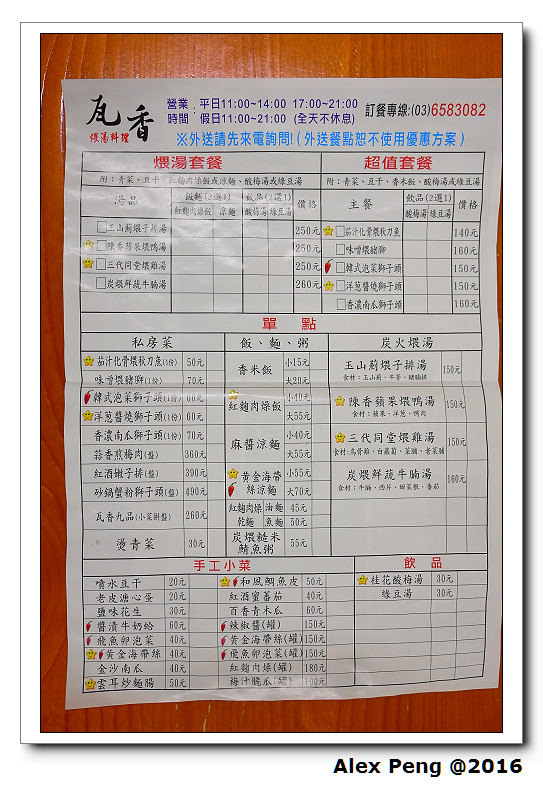 瓦香
煨湯料理
營業 平日11:00~14:00 17:00~21:00
時間 假日11:00~21:00 (全天不休息)
訂餐專線:(03)6583082
※外送請先來電詢問!(外送餐點恕不使用優惠方案)
煨湯套餐
附:青菜、豆干、紅麴肉燥飯或涼麵、酸梅湯或綠豆湯
湯品 飯麵(2選1) 飲品(2選1) 價格
紅麴肉燥飯 涼麵 酸梅湯 綠豆湯
玉山薊煨子排湯 250元
陳香蘋果煨鴨湯 250元
三代同堂煨雞湯 250元
炭煨鮮蔬牛腩湯 260元
超值套餐
附:青菜、豆干、香米飯、酸梅湯或綠豆湯
主餐 飲品(2選1) 價格
酸梅湯 綠豆湯
茄汁化骨煨秋刀魚 140元
味噌煨豬腳 160元
韓式泡菜獅子頭 150元
洋蔥醬燒獅子頭 150元
香濃南瓜獅子頭 160元
單點
私房菜
茄汁化骨煨秋刀魚(1份) 50元
味噌煨豬腳(1份) 70元
韓式泡菜獅子頭(1份) 60元
洋蔥醬燒獅子頭(1份) 60元
香濃南瓜獅子頭(1份) 70元
蒜香煎梅肉(盤) 360元
紅酒燉子排(盤) 390元
砂鍋蟹粉獅子頭(盤) 490元
瓦香九品(小菜拼盤) 260元
燙青菜 30元
飯、麵、粥
香米飯 小15元
大20元
紅麴肉燥飯 小40元
大55元
麻醬涼麵 小40元
大55元
黃金海帶絲涼麵 小55元
大70元
紅麴肉燥乾麵 油麵 45元
魚麵 50元
炭煨糙米鯖魚粥 55元
炭火煨湯
玉山薊煨子排湯 150元
食材:玉山薊、牛蒡、豬腩排
陳香蘋果煨鴨湯 150元
食材:蘋果、洋蔥、鴨肉
三代同堂煨雞湯 150元
食材:烏骨雞、白蘿蔔、菜脯、老菜脯
炭煨鮮蔬牛腩湯 160元
食材:牛腩、西芹、甜菜根、番茄
手工小菜
噴水豆干 20元
老皮溏心蛋 20元
鹽味花生 30元
醬漬牛奶蛤 60元
飛魚卵泡菜 40元
黃金海帶絲 40元
金沙南瓜 40元
雲耳炒麵腸 50元
和風鯛魚皮 50元
紅酒蜜蕃茄 40元
百香青木瓜 60元
辣椒醬(罐) 150元
黃金海帶絲(罐) 150元
飛魚卵泡菜(罐) 150元
紅麴肉燥(罐) 180元
梅汁脆瓜(罐) 100元
飲品
桂花酸梅湯 30元
綠豆湯 30元
Alex Peng @2016